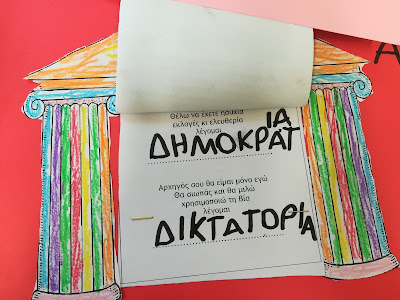 Θέλω να έχετε ησυχία
εκλογές κι ελευθερία
λέγομαι
ΔΗΜΟΚΡΑΤΙΑ
Αρχηγός σου θα είμαι μόνο εγώ
Θα σιωπάς και θα μιλώ
χρησιμοποιώ τη Βία
λέγομαι
ΔΙΚΤΑΤΟΡΙΑ
Α